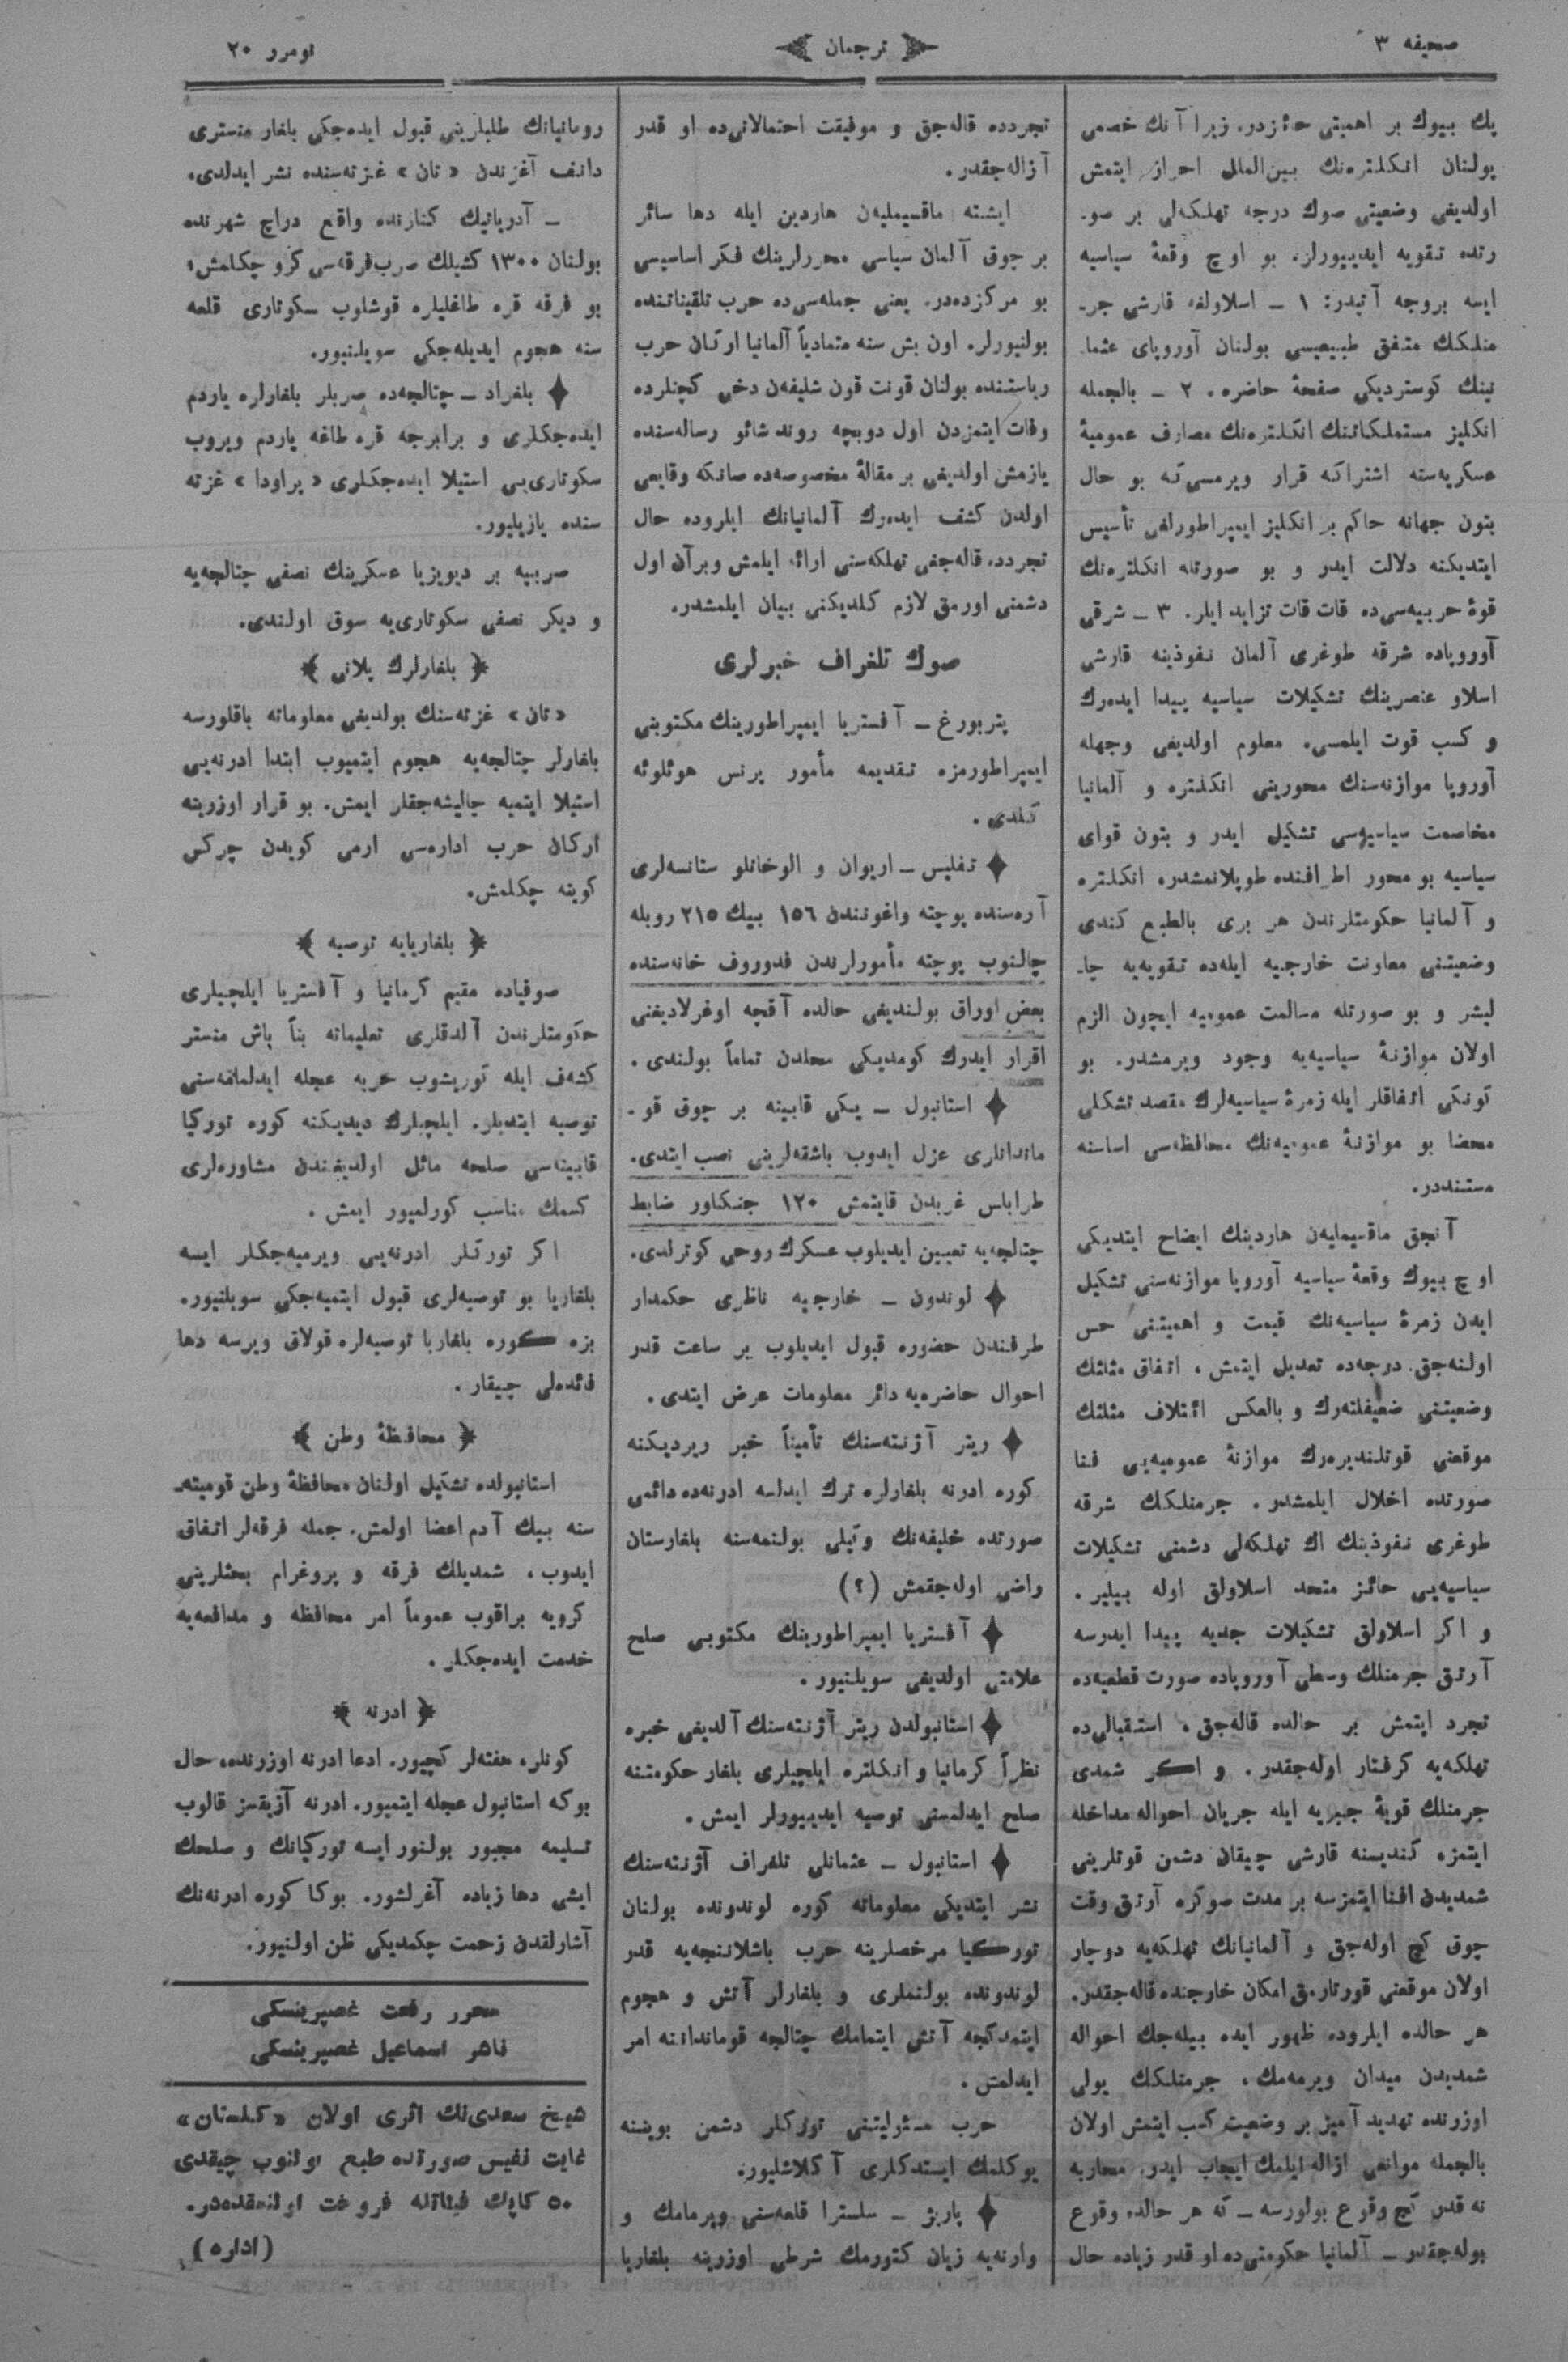 صحیفه ٣
ترجمان
نومرر ٢٠
پك بیوك بر اهمیتی حائزدر. زیرا آنك خصمی
بولنان انکلتره‌نك بین‌الملل احراز ایتمش
اولدیغی وضعیتی صوك درجه تهلکه‌لی بر صو-
رتده تقویه ایدییورلر. بو اوچ وقعۀ سیاسیه
ایسه بروجه آتیدر: ١ — اسلاولغه قارشی جر-
منلکك متفق طبیعیسی بولنان آوروپای عثما-
نینك کوستردیکی صفحۀ حاضره. ٢ — بالجمله
انکلیز مستملکاتنك انکلتره‌نك مصارف عمومیۀ
عسکریه‌سنه اشتراکه قرار ویرمسی‌که بو حال
بتون جهانه حاکم بر انکلیز ایمپراطورلغی تأسیس
ایتدیکنه دلالت ایدر و بو صورتله انکلتره‌نك
قوۀ حربیه‌سی‌ده قات قات تزاید ایلر. ٣ — شرقی
آوروپاده شرقه طوغری آلمان نفوذینه قارشی
اسلاو عنصرینك تشکیلات سیاسیه پیدا ایده‌رك
و کسب قوت ایلمسی. معلوم اولدیغی وجهله
آوروپا موازنه‌سنك محورینی انکلتره و آلمانیا
مخاصمت سیاسیه‌سی تشکیل ایدر و بتون قوای
سیاسیه بو محور اطرافنده طوپلانمشدر. انکلتره
و آلمانیا حکومتلرندن هر بری بالطبع کندی
وضعیتنی معاونت خارجیه ایله‌ده تقویه‌یه چا-
لیشر و بو صورتله مسالمت عمومیه ایچون الزم
اولان موازنۀ سیاسیه‌یه وجود ویرمشدر. بو
کونکی اتفاقلر ایله زمرۀ سیاسیه‌لرك مقصد تشکلی
محضا بو موازنۀ عمومیه‌نك محافظه‌سی اساسنه
مستنددر.
آنجق ماقسیمایه‌ن هاردینك ایضاح ایتدیکی
اوچ بیوك وقعۀ سیاسیه آوروپا موازنه‌سنی تشکیل
ایدن زمرۀ سیاسیه‌نك قیمت و اهمیتنی حس
اولنه‌جق درجه‌ده تعدیل ایتمش، اتفاق مثلثك
وضعیتنی ضعیفلته‌رك و بالعکس ائتلاف مثلثك
موقعنی قوتلندیره‌رك موازنۀ عمومیه‌یی فنا
صورتده اخلال ایلمشدر. جرمنلکك شرقه
طوغری نفوذینك اك تهلکه‌لی دشمنی تشکیلات
سیاسیه‌یی حائز متحد اسلاولق اوله بیلیر.
و اکر اسلاولق تشکیلات جدیه پیدا ایدرسه
آرتق جرمنلك وسطی آوروپاده صورت قطعیه‌ده
تجرد ایتمش بر حالده قاله‌جق، استقبالی‌ده
تهلکه‌یه کرفتار اوله‌جقدر. و اکر شمدی
جرمنلك قویۀ جبریه ایله جریان احواله مداخله
ایتمزه کندیسنه قارشی چیقان دشمن قوتلرینی
شمدیدن افنا ایتمزسه بر مدت صوکره آرتق وقت
چوق کچ اوله‌جق و آلمانیانك تهلکه‌یه دوچار
اولان موقعنی قورتارمق امکان خارجنده قاله‌جقدر.
هر حالده ایلروده ظهور ایده بیله‌جك احواله
شمدیدن میدان ویرمه‌مك، جرمنلکك یولی
اوزرنده تهدید آمیز بر وضعیت کسب ایتمش اولان
بالجمله موانعی ازاله ایلمك ایجاب ایدر. محاربه
نه قدر کچ وقوع بولورسه — که هر حالده وقوع
بوله‌جقدر — آلمانیا حکومتی‌ده او قدر زیاده حال
تجردده قاله‌جق و موفیقت احتمالاتی‌ده او قدر
آزاله‌جقدر.
ایشته ماقسیملیه‌ن هاردین ایله دها سائر
بر جوق آلمان سیاسی محررلرینك فکر اساسیسی
بو مرکزده‌در. یعنی جمله‌سی‌ده حرب تلقیناتنده
بولنیورلر. اون بش سنه متمادیاً آلمانیا ارکان حرب
ریاستنده بولنان قونت فون شلیفه‌ن دخی کچنلرده
وفات ایتمزدن اول دویچه روندشائو رساله‌سنده
یازمش اولدیغی بر مقالۀ مخصوصه‌ده صانکه وقایعی
اولدن کشف ایده‌رك آلمانیانك ایلروده حال
تجردده قاله‌جغی تهلکه‌سنی ارائه ایلمش وبرآن اول
دشمنی اورمق لازم کلدیکنی بیان ایلمشدر.
صوك تلغراف خبرلری
پتربورغ — آفستریا ایمپراطورینك مکتوبنی
ایمپراطورمزه تقدیمه مأمور پرنس هوئلوئه
کلدی.
تفلیس — اریوان و الوخانلو ستانسه‌لری
آره‌سنده پوچته واغونندن ١٥٦ بیك ٢١٥ روبله
چالنوب پوچته مأمورلرندن فدوروف خانه‌سنده
بعض اوراق بولندیغی حالده آقچه اوغرلادیغنی
اقرار ایدرك کومدیکی محلدن تماماً بولندی.
استانبول — یکی قابینه بر چوق قو-
ماندانلری عزل ایدوب باشقه‌لرینی نصب ایتدی.
طرابلس غربدن قایتمش ١٢٠ جنکاور ضابط
چتالجه‌یه تعیین ایدیلوب عسکرك روحی کوترلدی.
لوندون — خارجیه ناظری حکمدار
طرفندن حضوره قبول ایدیلوب بر ساعت قدر
احوال حاضره‌یه دائر معلومات عرض ایتدی.
ریتر آژنته‌سنك تأمیناً خبر ویردیکنه
کوره ادرنه بلغارلره ترك ایدلسه ادرنه‌ده دائمی
صورتده خلیفه‌نك وکیلی بولنمه‌سنه بلغارستان
راضی اوله‌جقمش (؟)
آفستریا ایمپراطورینك مکتوبی صلح
علامتی اولدیغی سویلنیور.
استانبولدن ریتر آژنته‌سنك آلدیغی خبره
نظراً کرمانیا و انکلتره ایلچیلری بلغار حکومتنه
صلح ایدلمسنی توصیه ایدییورلر ایمش.
استانبول — عثمانلی تلغراف آژنته‌سنك
نشر ایتدیکی معلوماته کوره لوندونده بولنان
تورکیا مرخصلرینه حرب باشلاننجه‌یه قدر
لوندونده بولنملری و بلغارلر آتش و هجوم
ایتمدکجه آتش ایتمامك چتالجه قوماندانینه امر
ایدلمش.
حرب مسئولیتنی تورکلر دشمن بویننه
یوکلمك ایستدکلری آکلاشلیور.
پاریژ — سلسترا قلعه‌سنی ویرمامك و
وارنه‌یه زیان کتورمك شرطی اوزرینه بلغاریا
رومانیانك طلبلرینی قبول ایده‌جکی بلغار منستری
دانف آغزندن «تان» غزته‌سنده نشر ایدلدی.
— آدریاتیك کنارنده واقع دراچ شهرنده
بولنان ١٣٠٠ کشیلك صرب فرقه‌سی کرو چکلمش؛
بو فرقه قره طاغلیلره قوشلوب سکوتاری قلعه
سنه هجوم ایدیله‌جکی سویلنیور.
بلغراد — چتالجه‌ده صربلر بلغارلره یاردم
ایده‌جکلری و برابرجه قره طاغه یاردم ویروب
سکوتاری‌یی استیلا ایده‌جکلری «پراودا» غزته
سنده یازیلیور.
صربیه بر دیویزیا عسکرینك نصفی چتالجه‌یه
و دیکر نصفی سکوتاری‌یه سوق اولندی.
بلغارلرك پلانی
«تان» غزته‌سنك بولدیغی معلوماته باقلورسه
بلغارلر چتالجه‌یه هجوم ایتمیوب ابتدا ادرنه‌یی
استیلا ایتمیه چالیشه‌جقلر ایمش. بو قرار اوزرینه
ارکان حرب اداره‌سی ارمی کویدن چرکس
کوینه چکلمش.
بلغاریایه توصیه
صوفیاده مقیم کرمانیا و آفستریا ایلچیلری
حکومتلرندن آلدقلری تعلیماته بناً باش منستر
کشه‌ف ایله کوریشوب حربه عجله ایدلمامه‌سنی
توصیه ایتدیلر. ایلچیلرك دیدیکنه کوره تورکیا
قابینه‌سی صلحه مائل اولدیغندن مشاوره‌لری
کسمك مناسب کورلمیور ایمش.
اکر تورکلر ادرنه‌یی ویرمیه‌جکلر ایسه
بلغاریا بو توصیه‌لری قبول ایتمیه‌جکی سویلنیور.
بزه کوره بلغاریا توصیه‌لره قولاق ویرسه دها
فائده‌لی چیقار.
محافظۀ وطن
استانبولده تشکیل اولنان محافظۀ وطن قومیته-
سنه بیك آدم اعضا اولمش. جمله فرقه‌لر اتفاق
ایدوب، شمدیلك فرقه و پروغرام بحثلرینی
کرویه براقوب عموماً امر محافظه و مدافعه‌یه
خدمت ایده‌جکلر.
ادرنه
کونلر، هفته‌لر کچیور. ادعا ادرنه اوزرنده، حال
بوکه استانبول عجله ایتمیور. ادرنه آزیقسز قالوب
تسلیمه مجبور بولنور ایسه تورکیانك و صلحك
ایشی دها زیاده آغرلشور. بوکا کوره ادرنه‌نك
آشارلقدن زحمت چکمدیکی ظن اولنیور.
محرر رفعت غصپرینسکی
ناشر اسماعیل غصپرینسکی
شیخ سعدی‌نك اثری اولان «کلستان»
غایت نفیس صورتده طبع اولنوب چیقدی
٥٠ کاپك فیئاتله فروخت اولنمقده‌در.
(اداره)